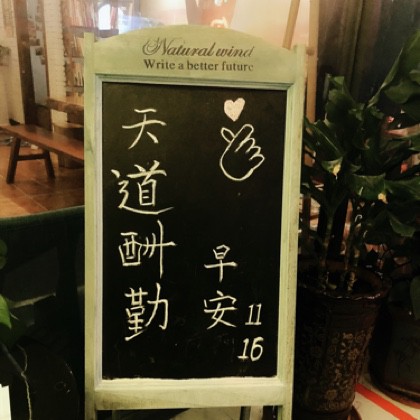 Natural wind
Write a better future
天道酬勤
早安
11
16